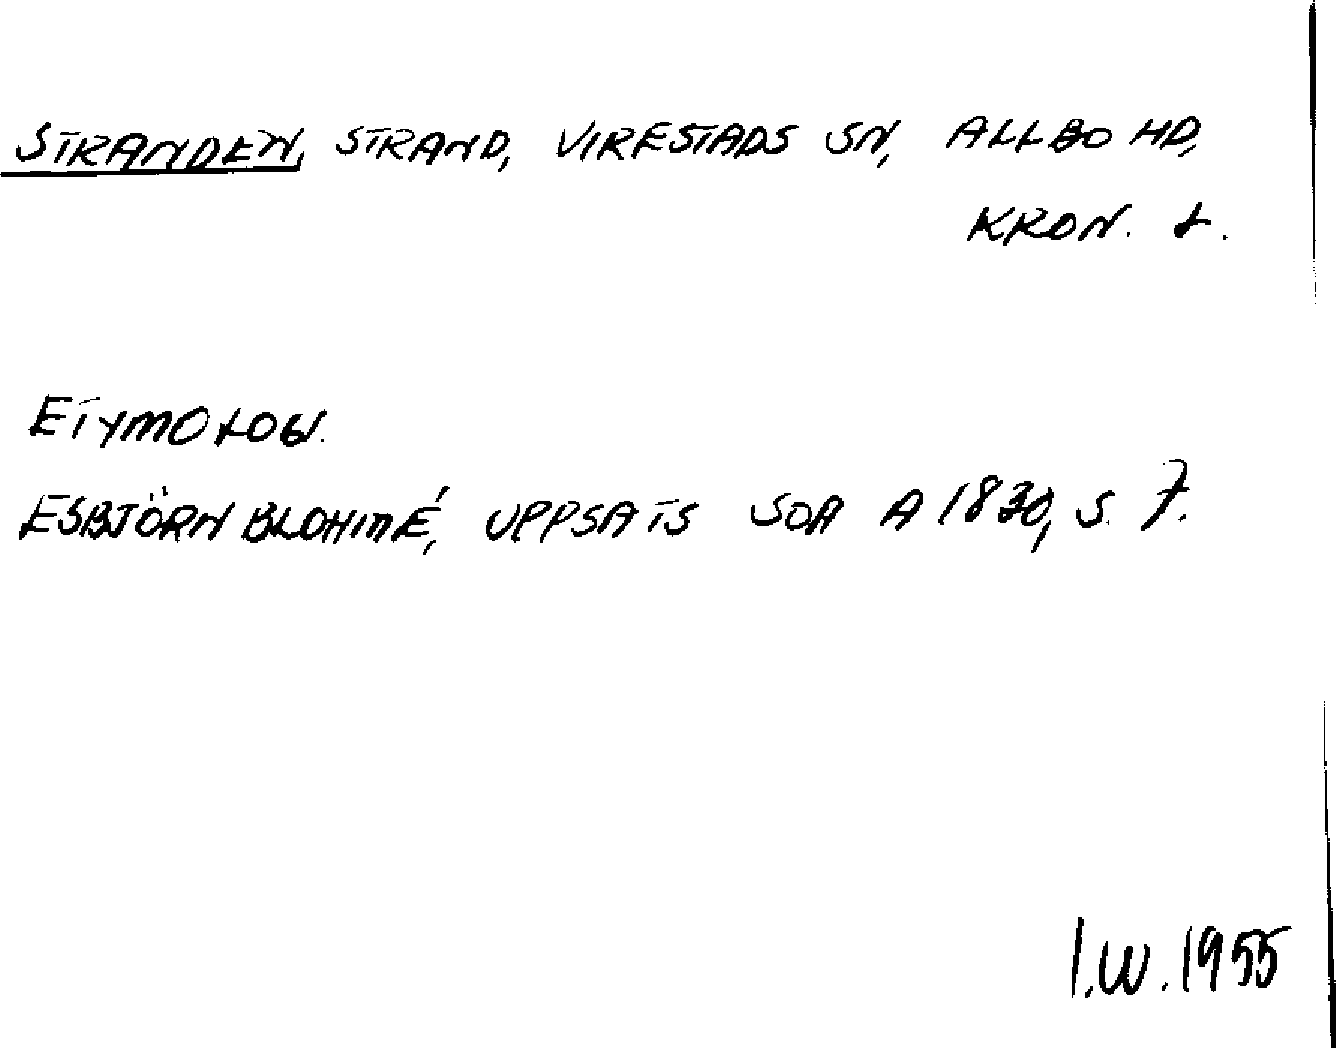 STRANDEN, STRAND, VIRESTADS SN, ALLBO HD,
KRON. L.
ETYMOLOGI.
ESBJÖRN BLOHMÉ, UPPSATS SOA A 1830, S. 7.
I.W. 1955